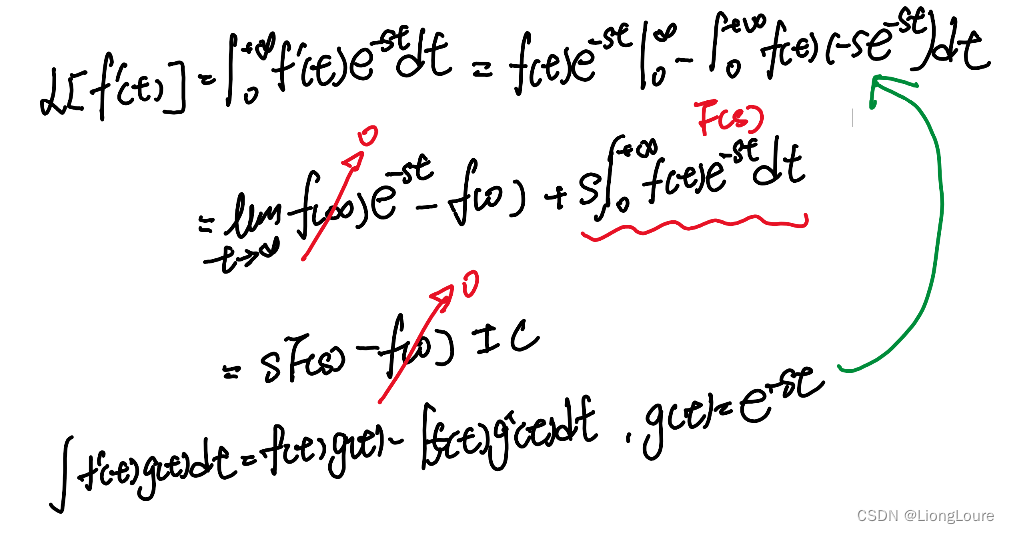 L[f'(t)] = ∫₀^{+∞} f'(t)e^{-st}dt = f(t)e^{-st}|₀^∞ - ∫₀^{+∞} f(t)(-se^{-st})dt
0 F(s)
= lim_{t→∞} f(∞)e^{-st} - f(0) + s∫₀^{+∞} f(t)e^{-st}dt
0
= sF(s) - f(0) IC
∫f'(t)g(t)dt = f(t)g(t) - ∫f(t)g'(t)dt , g(t) = e^{-st}
CSDN @LiongLoure